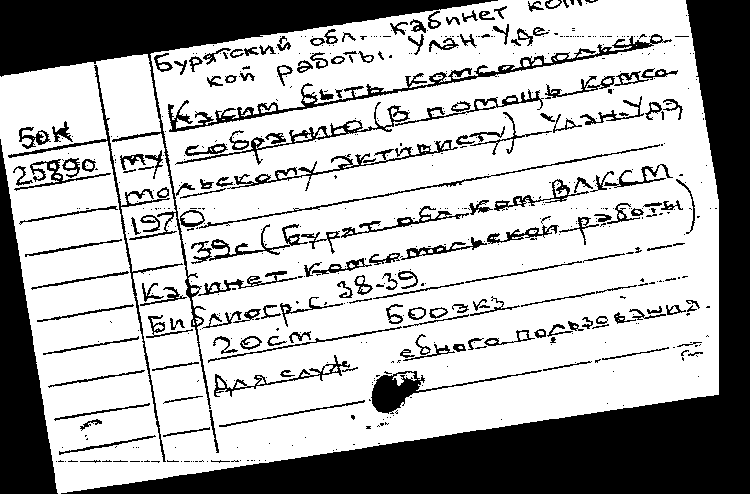 Бурятский обл. кабинет комс
кой работы. Улан-Удэ.
Каким быть комсомольско
му собранию. (В помощь комсо
мольскому активисту) Улан-Удэ,
1970.
39с (Бурят. обл. ком. ВЛКСМ.
Кабинет комсомольской работы)
Библиогр: с. 38-39.
20см. 500экз
Для служебного пользования.
БОК
25890